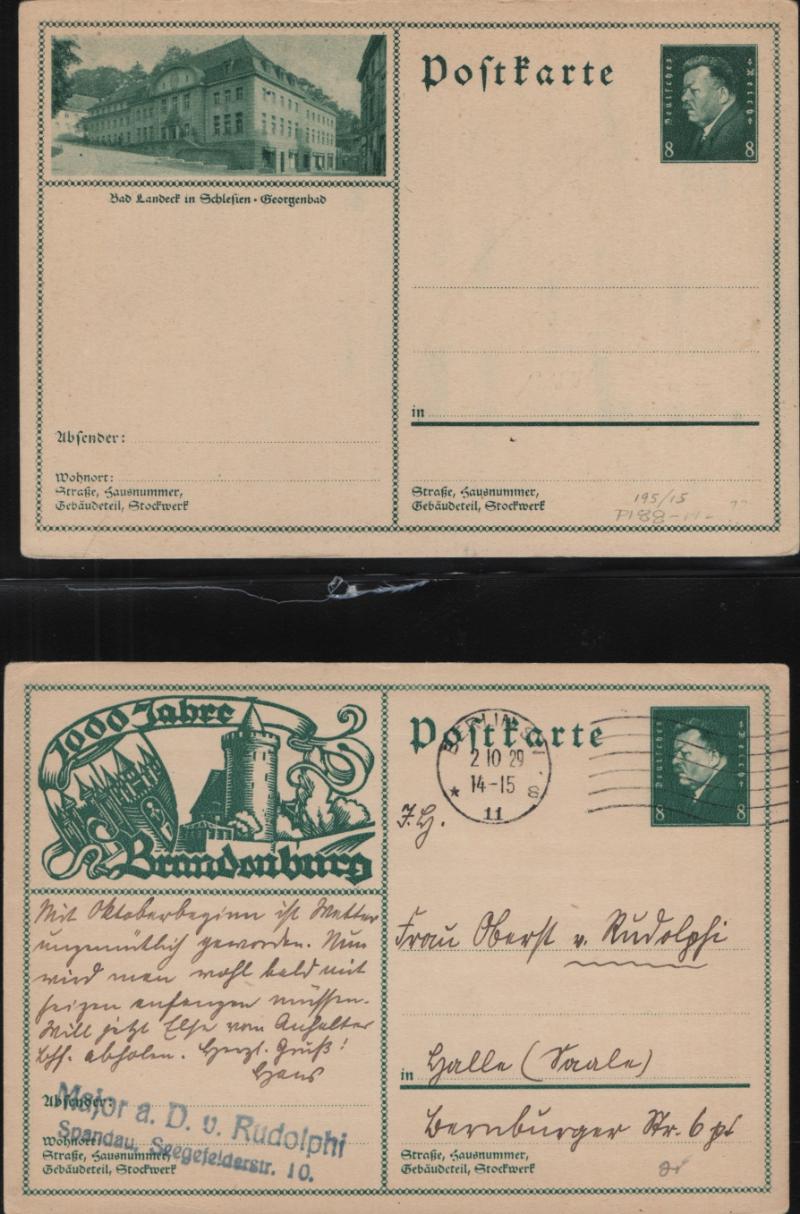 Postkarte
Deutsches Reich
8 8
Bad Landeck in Schlesien · Georgenbad
in
Absender:
Wohnort:
Straße, Hausnummer,
Gebäudeteil, Stockwerk
Straße, Hausnummer,
Gebäudeteil, Stockwerk
195/15
P188
1000 Jahre
Brandenburg
Postkarte
Deutsches Reich
8 8
BERLIN
2.10.29
14-15
11
Frau Oberst v. Rudolphi
Mit Oktoberbeginn ist Wetter
ungemütlich geworden. Nun
wird man wohl bald mit
heizen anfangen müssen.
Will jetzt Else vom Anhalter
Bhf. abholen. Herzl. Gruß!
Hans
in Halle (Saale)
Bernburger Str. 6 pt
Absender:
Major a. D. v. Rudolphi
Spandau, Seegefelderstr. 10.
Wohnort:
Straße, Hausnummer,
Gebäudeteil, Stockwerk
Straße, Hausnummer,
Gebäudeteil, Stockwerk